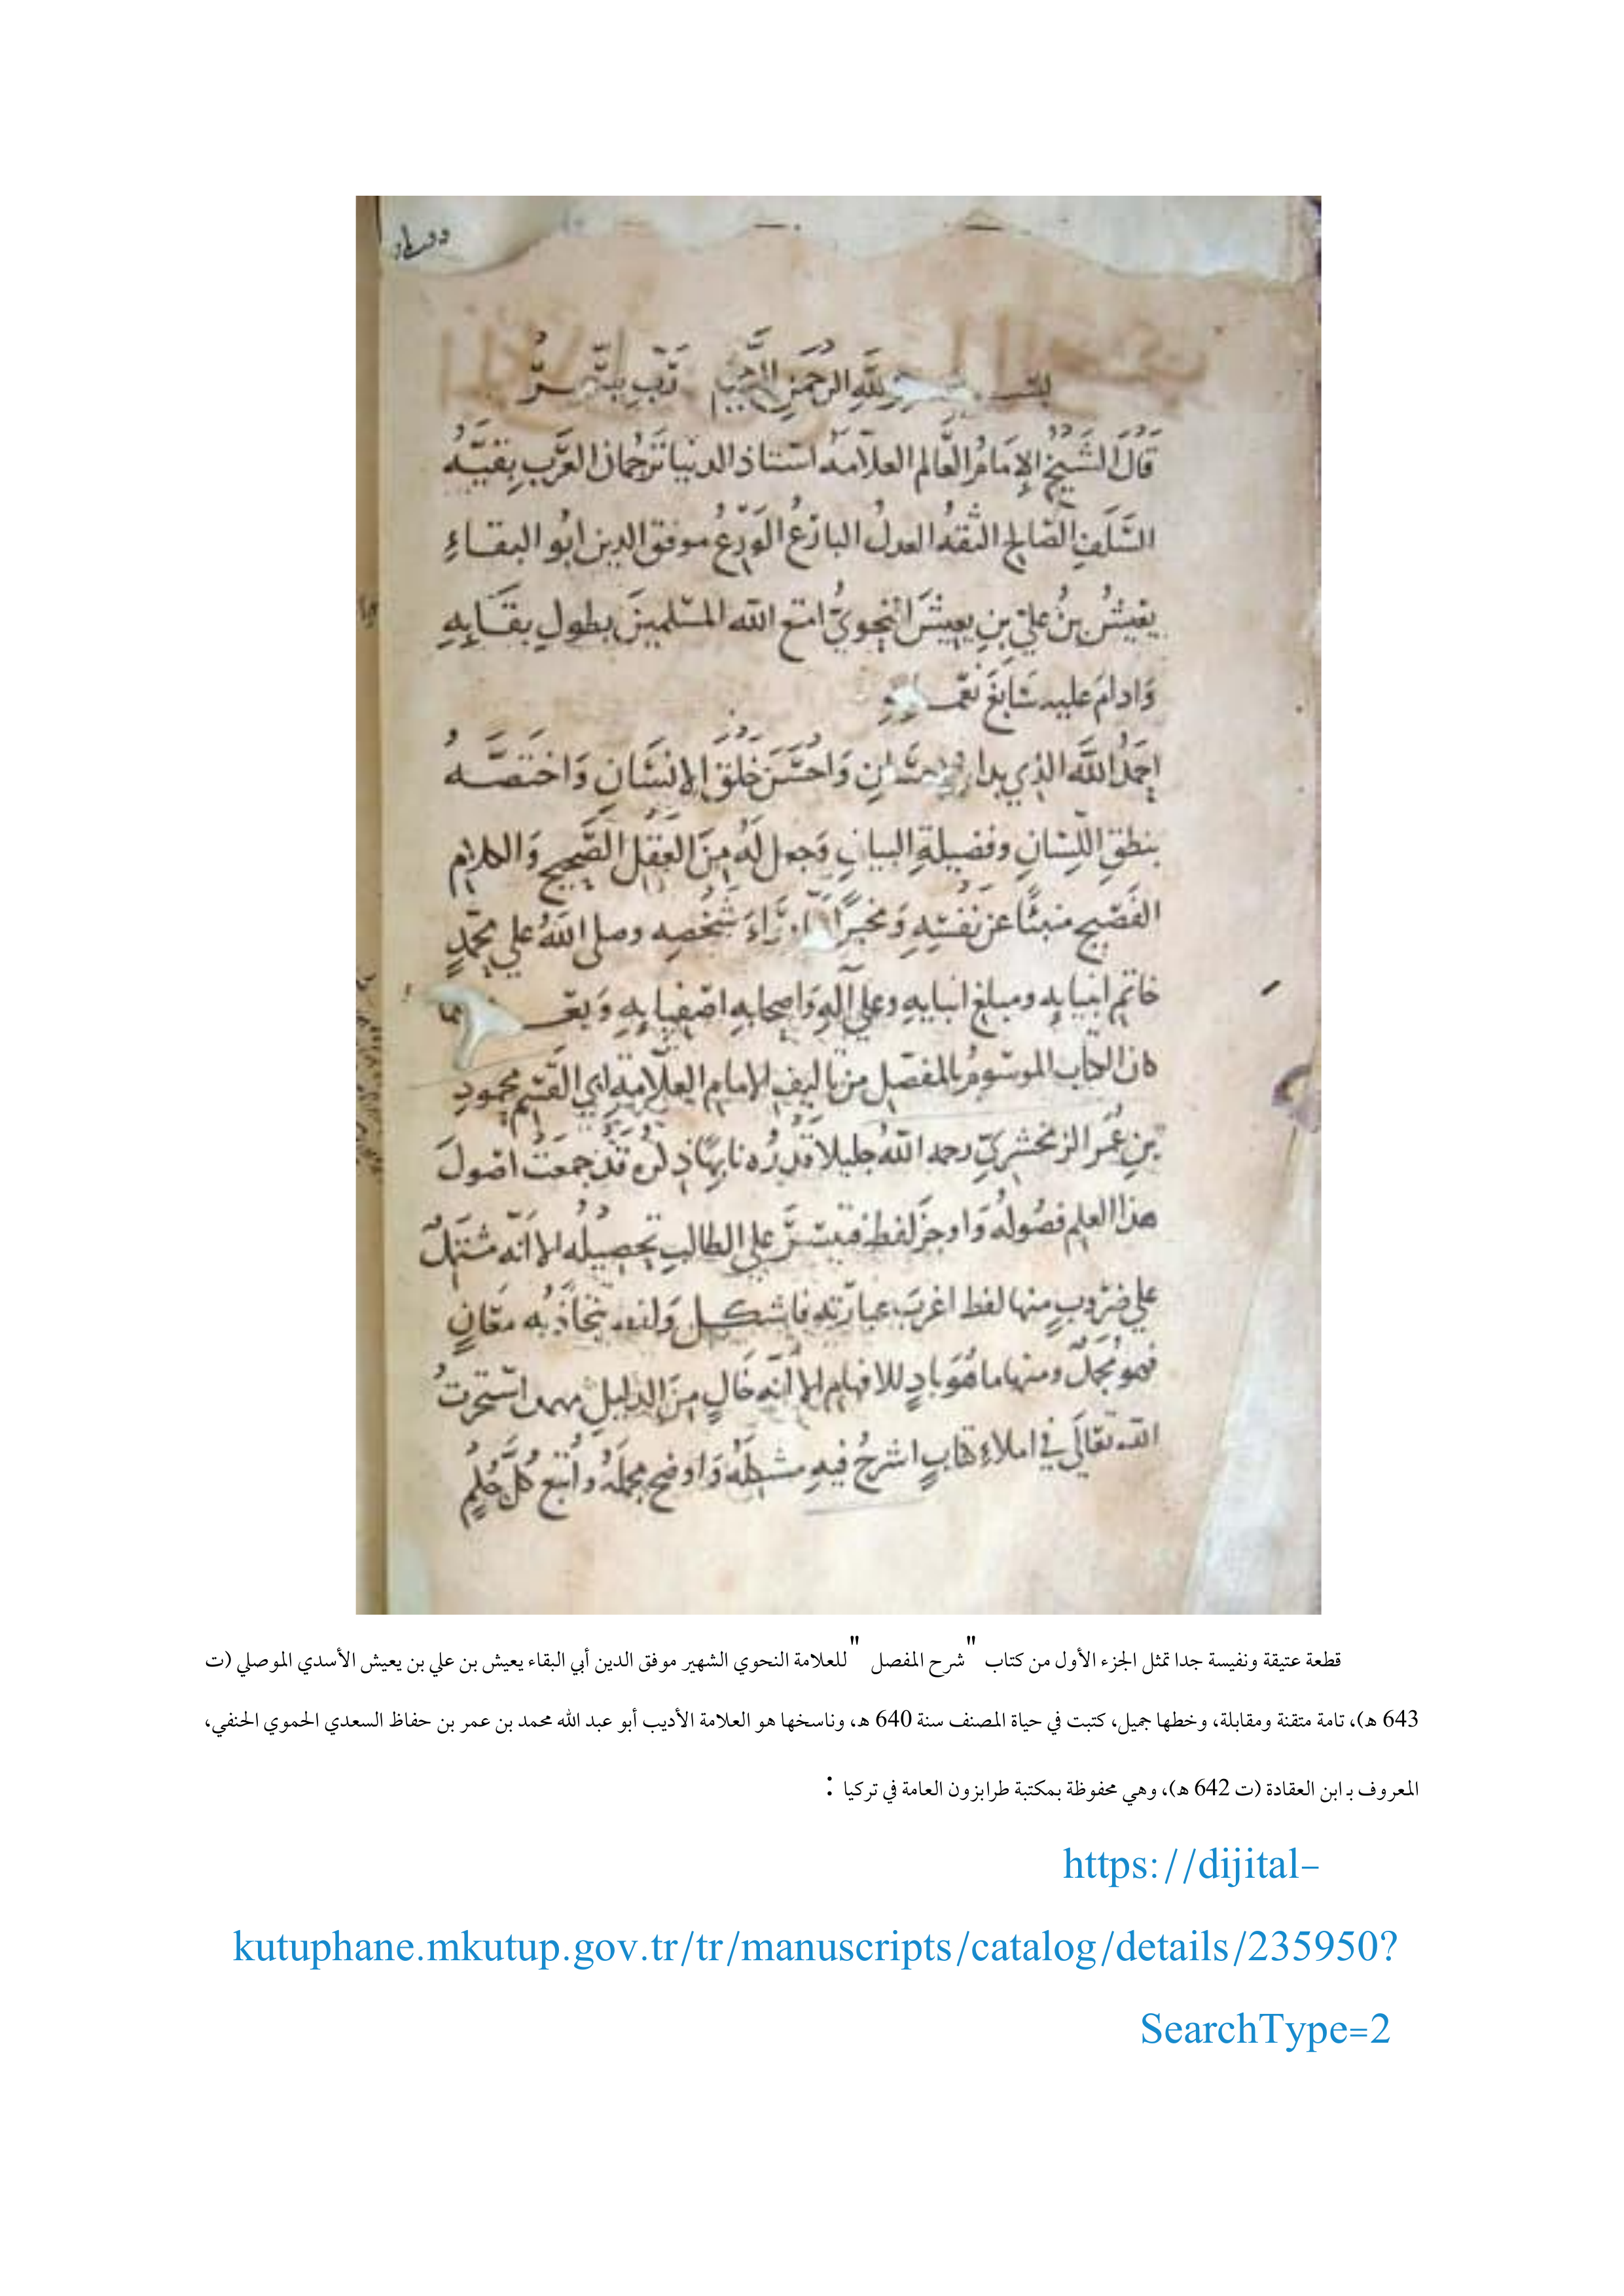 بسم الله الرحمن الرحيم رب يسر
قَالَ الشَّيخُ الإمَامُ العَالم العلامة استاذ الدنيا تَرجُمان العَرَب بقيَّة
السَّلَفِ الصَالح الثقةُ العدلُ البارعُ الوَرِعُ موفق الدين ابُو البقاءِ
يَعيشُ بنُ عليّ بنِ يعيشَ النحويُّ امتع الله المسلمينَ بطولِ بقَايِهِ
وَادامَ عليه سَابغَ نعمه
احمَدُ اللهَ الذي بدا بالاحسَانِ وَاحْسَنَ خَلقَ الإنسَانِ وَاختَصَّهُ
بنطقِ اللِّسَانِ وفضيلةِ البيانِ وَجعل لَهُ مِنَ العَقلِ الصَّحيح وَالكلامِ
الفَصيح منبئًا عن نَفْسِهِ وَمخبرًا ورَاءَ شَخْصِهِ وصلى اللهُ علي محمّدٍ
خاتم انبيايه ومبلغ انبايهِ وعلي آلِهِ وَاصحابهِ اصفيايِهِ وَبعد
كان الكتاب الموسومُ بالمفصل من تاليف الامام العلامة ابي القسم محمودِ
بنِ عُمَر الزمخشريّ رحمه اللهُ جليلا قَدْرُه نابهًا ذكرُه قَدْ جمعَتْ اصُولَ
هذا العلم فصُولُه وَاوجز لفظه فتيسَّرَ علي الطالبِ تحصيلُه الا انّه مشتملٌ
علي ضرُوبٍ منها لفظ اغربَ عبارَته فاشكل ولفظ تَجَاذَبُه مَعَانٍ
فهو مُجمَلٌ ومنها ما هُوَ بادٍ للافهام الا انّه خَالٍ منَ الدليلِ مهمل استخرتُ
الله تعَالَي في املاءِ كتابٍ اشرحُ فيهِ مشكلَهُ وَاوضح مجملَهُ واُتبع كُلَّ حُكمٍ
قطعة عتيقة ونفيسة جدا تمثل الجزء الأول من كتاب "شرح المفصل" للعلامة النحوي الشهير موفق الدين أبي البقاء يعيش بن علي بن يعيش الأسدي الموصلي (ت
643 هـ)، تامة متقنة ومقابلة، وخطها جميل، كتبت في حياة المصنف سنة 640 هـ، وناسخها هو العلامة الأديب أبو عبد الله محمد بن عمر بن حفاظ السعدي الحموي الحنفي،
المعروف بـ ابن العقادة (ت 642 هـ)، وهي محفوظة بمكتبة طرابزون العامة في تركيا :
https://dijital-
kutuphane.mkutup.gov.tr/tr/manuscripts/catalog/details/235950?
SearchType=2